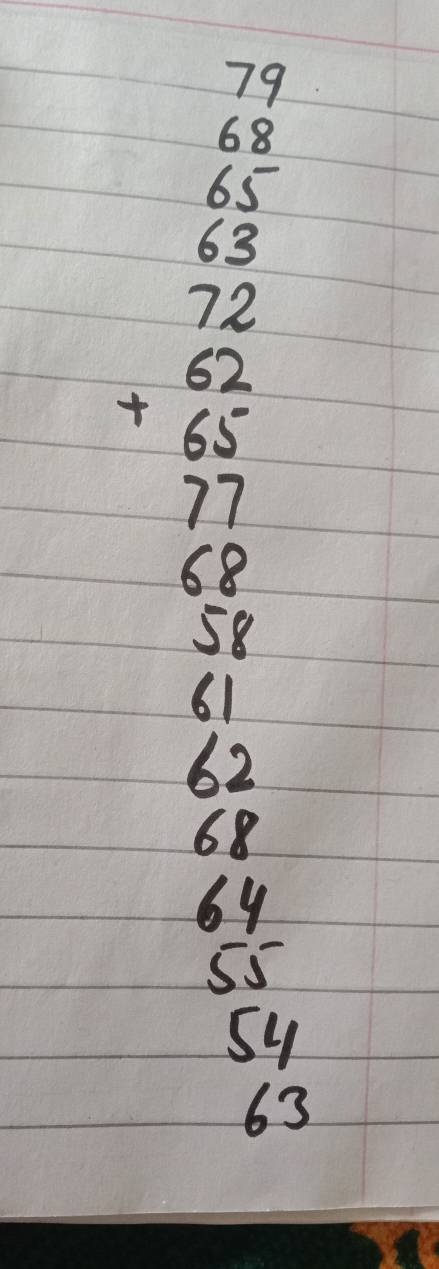 79
68
65
63
72
62
+ 65
77
68
58
61
62
68
64
55
54
63